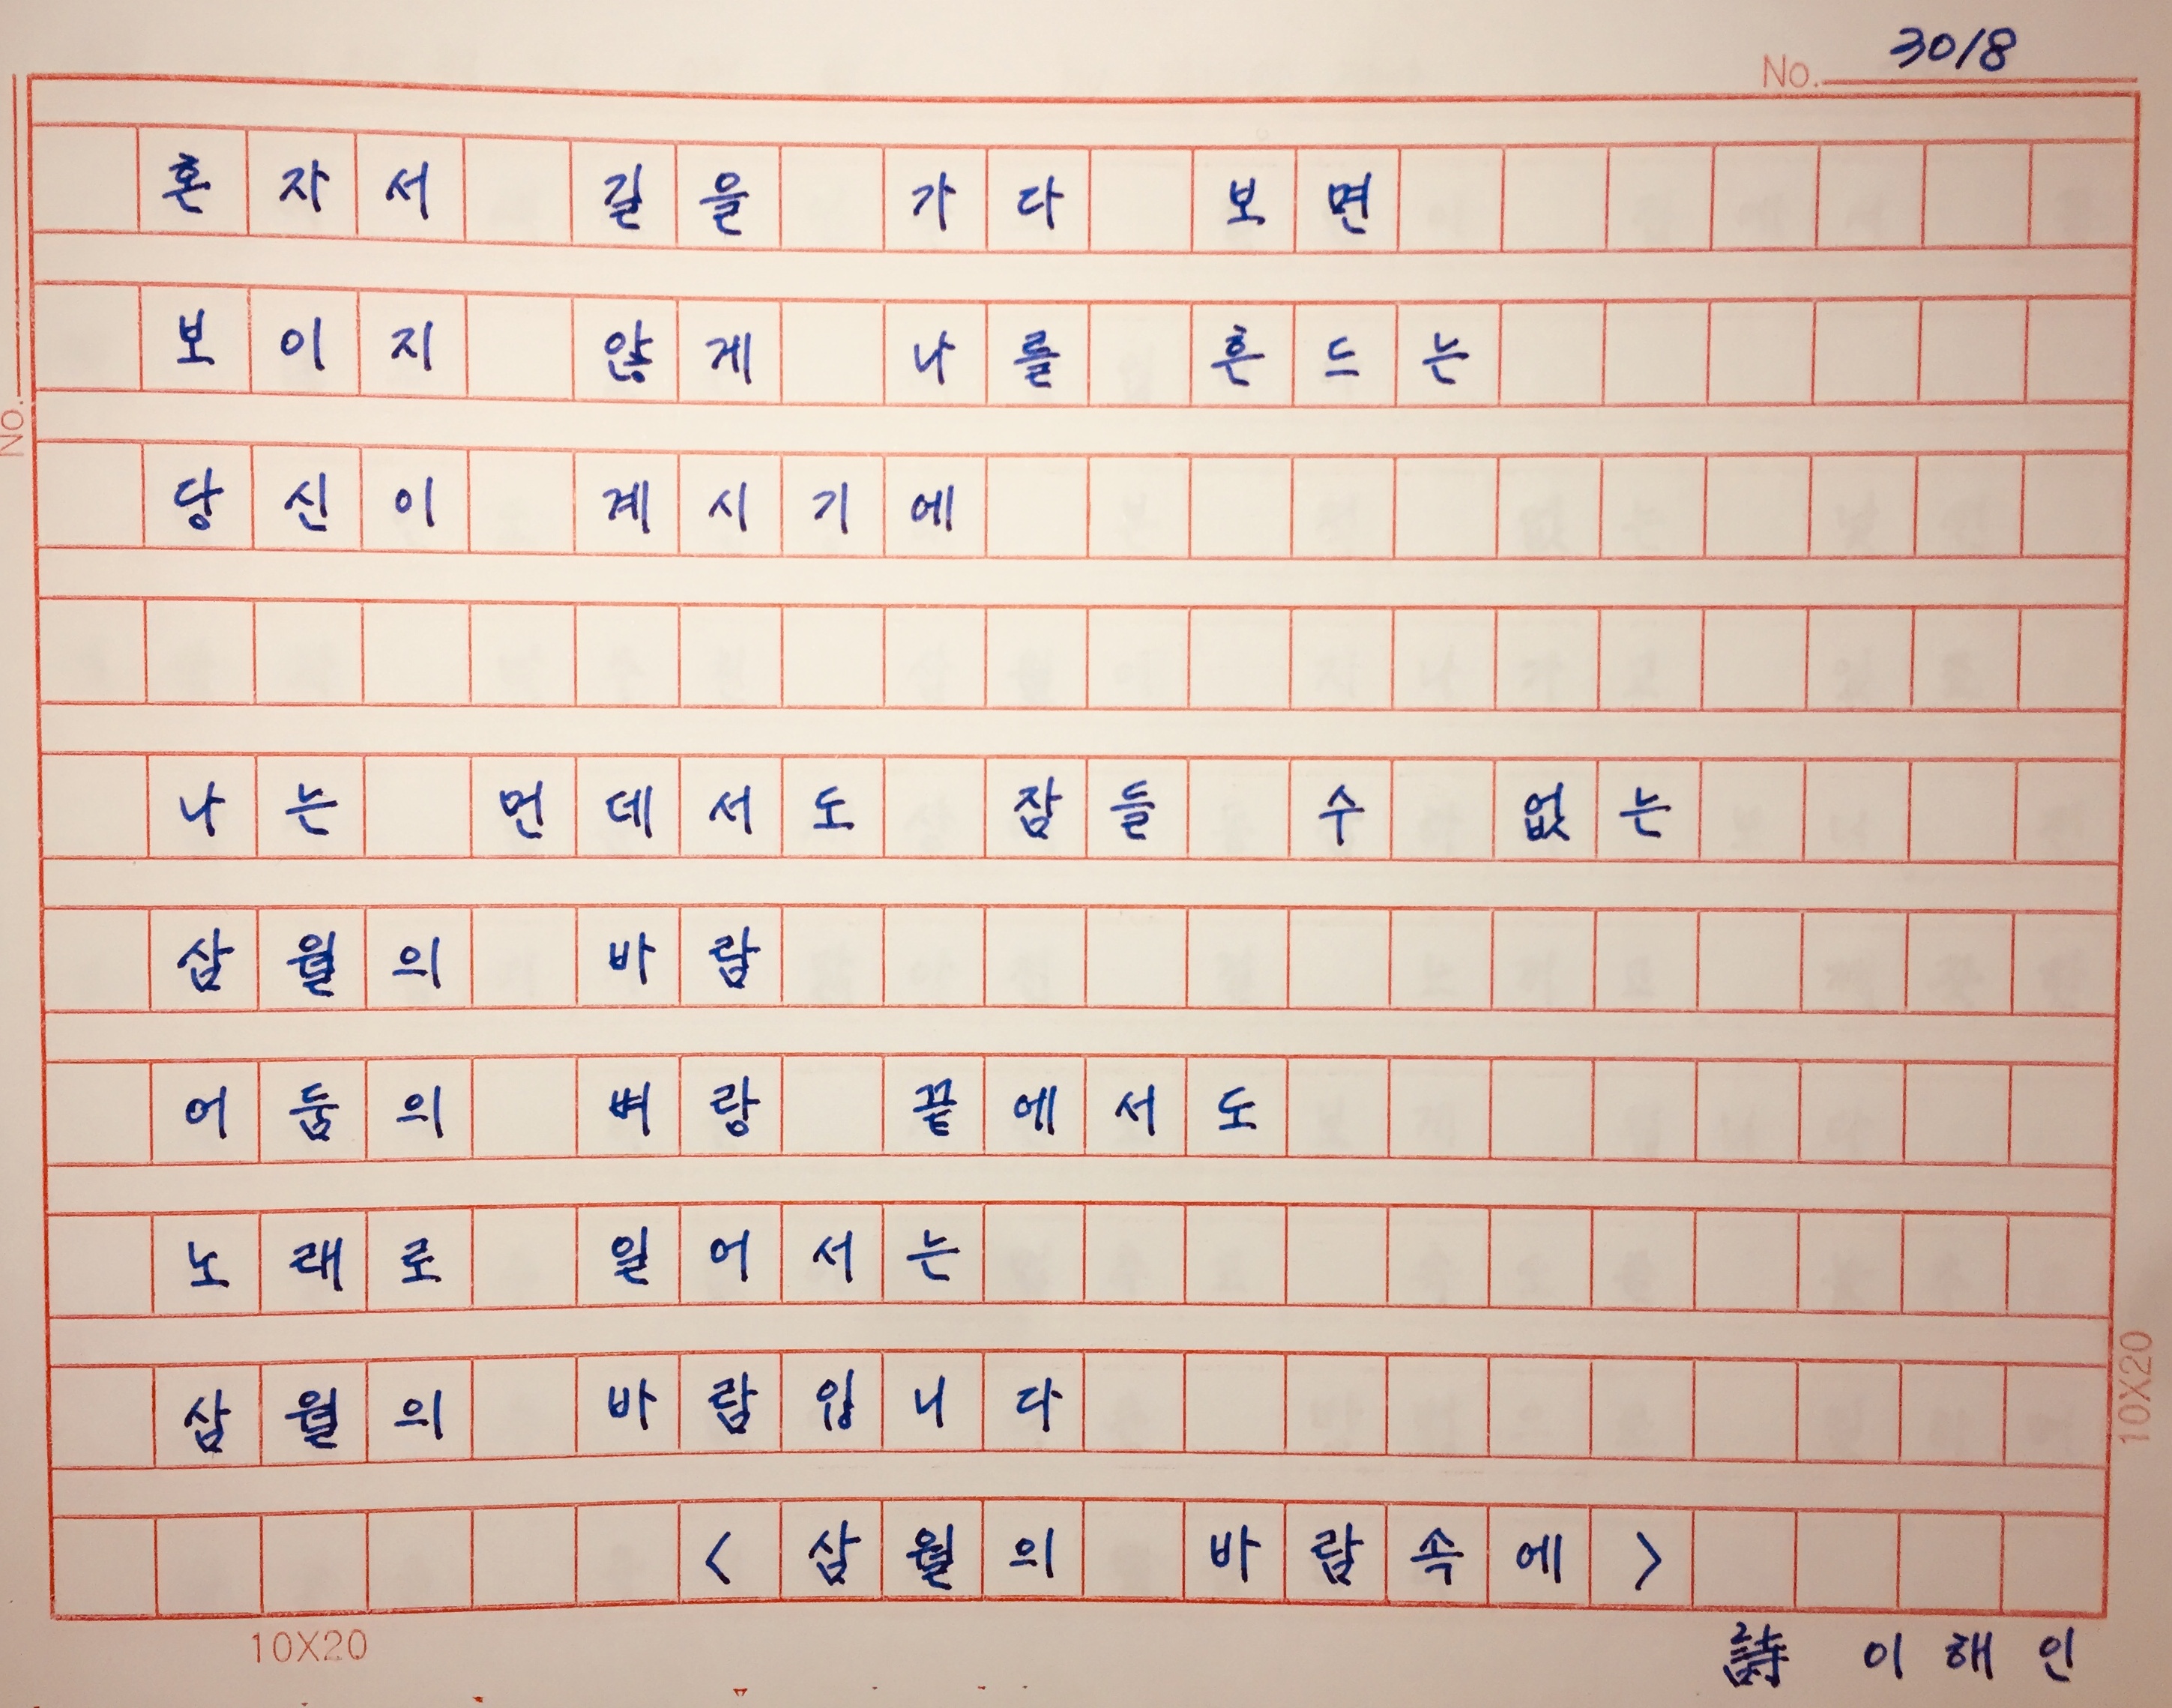 No. 3018
혼자서 길을 가다 보면
보이지 않게 나를 흔드는
No.
당신이 계시기에
나는 먼데서도 잠들 수 없는
삼월의 바람
어둠의 벼랑 끝에서도
노래로 일어서는
삼월의 바람입니다
10X20
<삼월의 바람속에>
10X20
詩 이해인